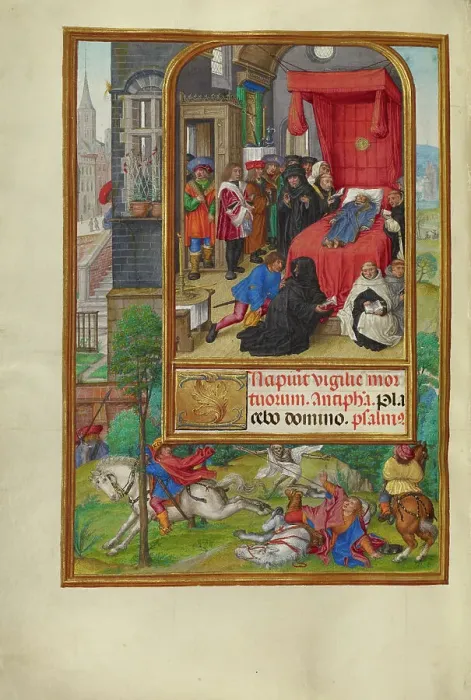 Incipiūt vigilie mor
tuorum. Antipha. Pla
cebo domino. psalmꝰ